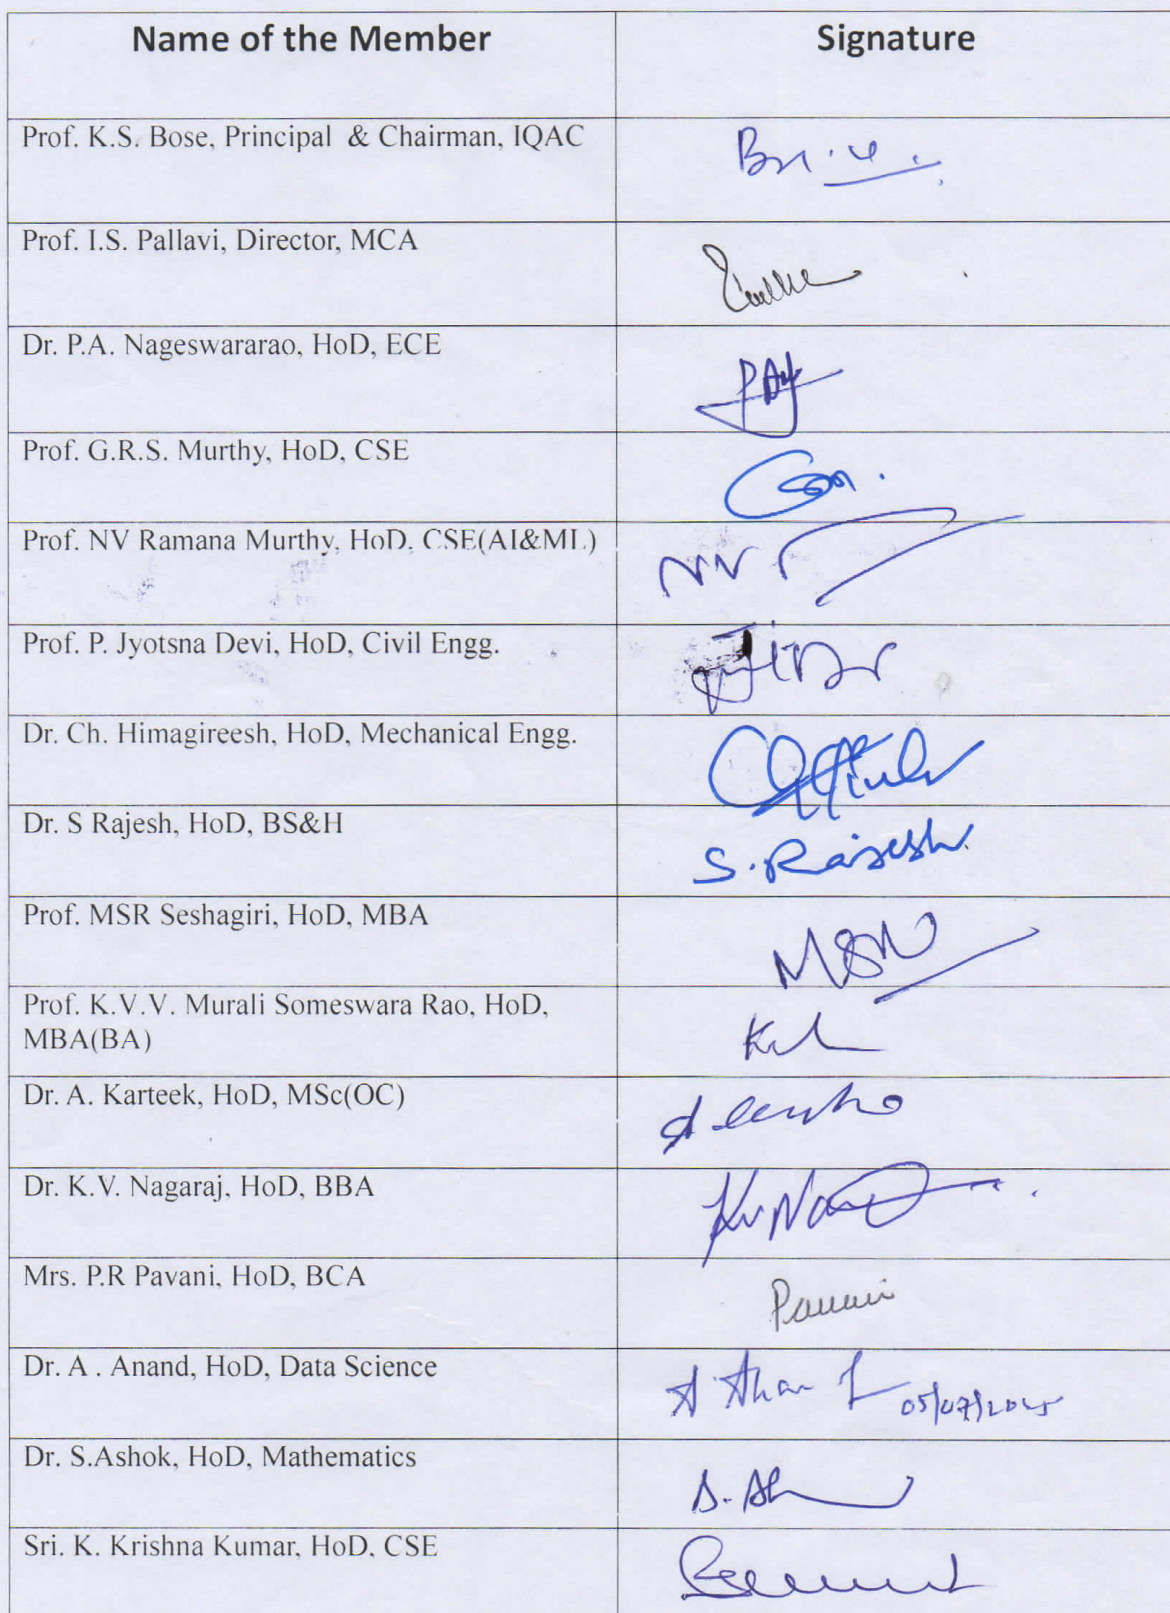 Name of the Member Signature
Prof. K.S. Bose, Principal & Chairman, IQAC
Prof. I.S. Pallavi, Director, MCA
Dr. P.A. Nageswararao, HoD, ECE
Prof. G.R.S. Murthy, HoD, CSE
Prof. NV Ramana Murthy, HoD, CSE(AI&ML)
Prof. P. Jyotsna Devi, HoD, Civil Engg.
Dr. Ch. Himagireesh, HoD, Mechanical Engg.
Dr. S Rajesh, HoD, BS&H
S. Rajesh
Prof. MSR Seshagiri, HoD, MBA
Prof. K.V.V. Murali Someswara Rao, HoD,
MBA(BA)
Dr. A. Karteek, HoD, MSc(OC)
Dr. K.V. Nagaraj, HoD, BBA
Mrs. P.R Pavani, HoD, BCA
Pavani
Dr. A . Anand, HoD, Data Science
05/07/2025
Dr. S.Ashok, HoD, Mathematics
Sri. K. Krishna Kumar, HoD, CSE